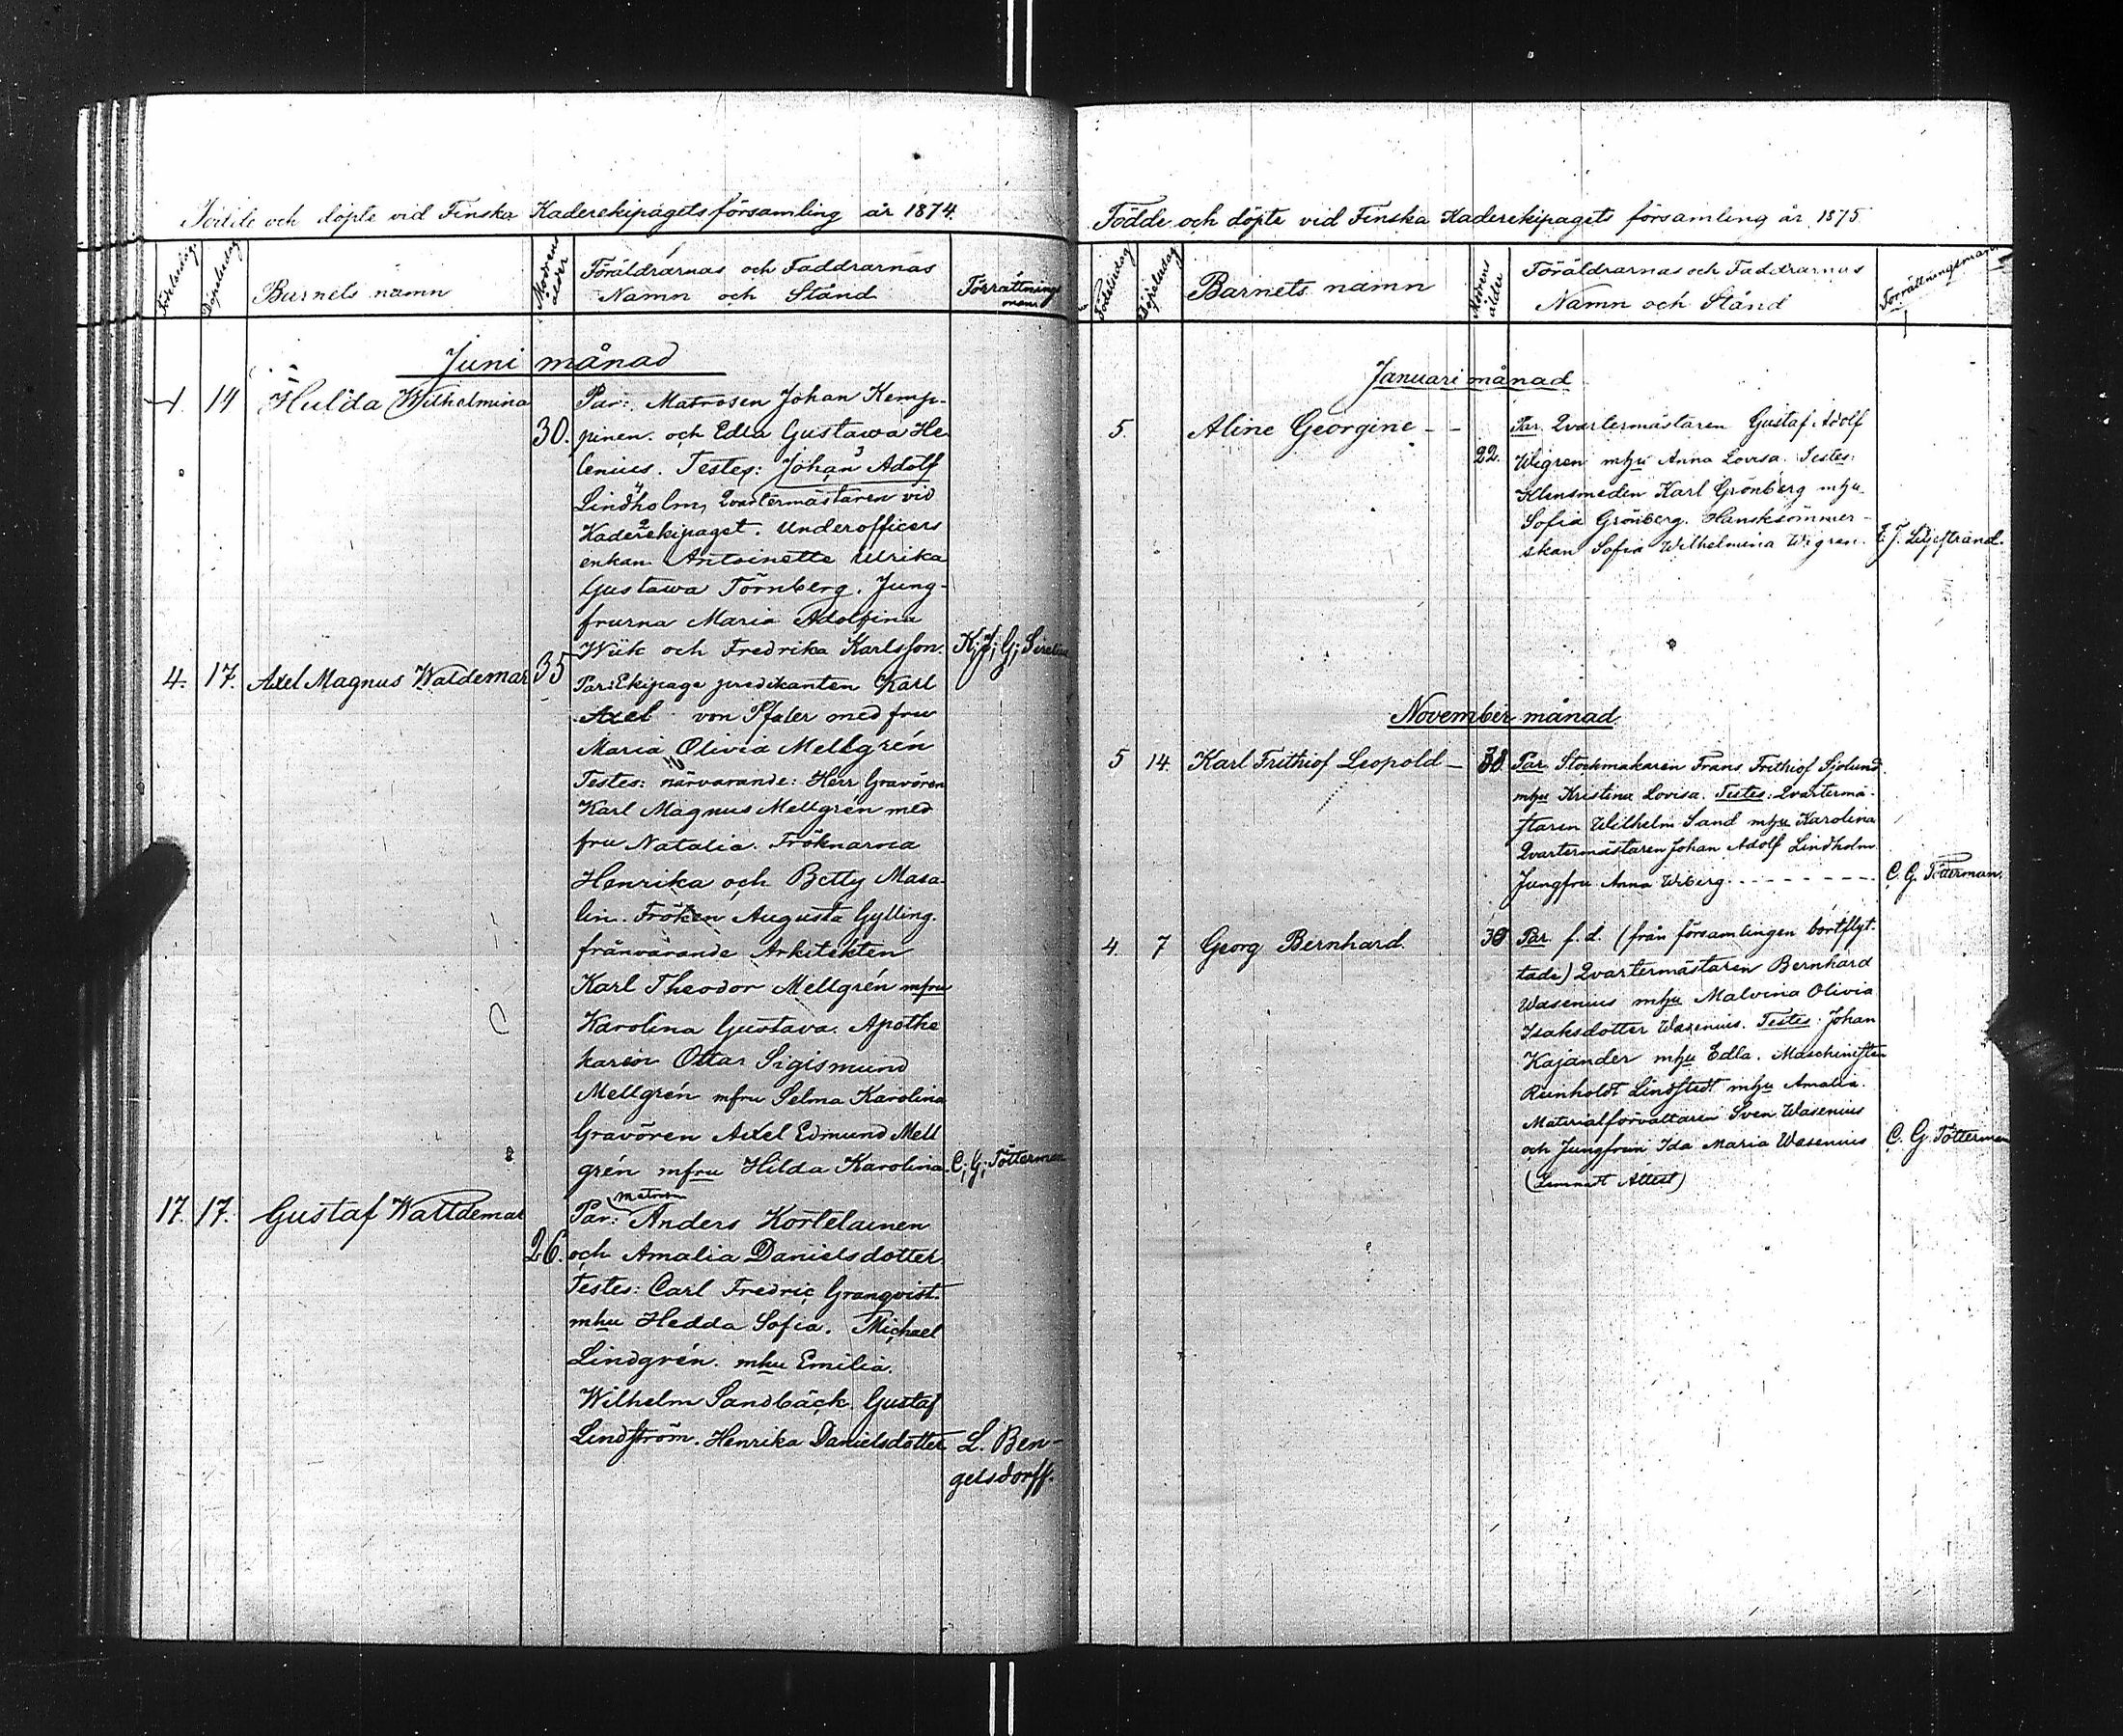 Födde och döpte vid Finska Kaderekipagets församling år 1874.
Födelsedag Döpelsedag Barnets namn Modrens ålder Föräldrarnas och Faddrarnas Namn och Stånd Förrättnings man
Juni månad
1. 14 Hulda Wilhelmina
30.
Par: Matrosen Johan Kemp-
pinen och Edla Gustawa He
lenius. Testes: Johan Adolf
Lindholm, Qvartermästaren vid
Kaderekipaget. Underofficers
enkan Antoinette Ulrika
Gustawa Törnberg. Jung-
frurna Maria Adolfina
Wiik och Fredrika Karlsson.
K; J; G; Sirelius
4. 17. Axel Magnus Waldemar 35
Par: Ekipage predikanten Karl
Axel von Pfaler med fru
Maria Olivia Mellgrén
Testes: närvarande: Herr Gravören
Karl Magnus Mellgrén med
fru Natalia. Fröknarna
Henrika och Betty Masa-
lin. Fröken Augusta Gylling.
frånvarande Arkitekten
Karl Theodor Mellgrén mfru
Karolina Gustava. Apothe
karen Ottar Sigismund
Mellgrén mfru Selma Karolina
Gravören Axel Edmund Mell
grén mfru Hilda Karolina.
C; G; Tötterman
17. 17. Gustaf Walldemar
26.
matrosen
Par: Anders Kortelainen
och Amalia Danielsdotter.
Testes: Carl Fredric Granqvist.
mhu Hedda Sofia. Michael
Lindgrén. mhu Emilia.
Wilhelm Sandbäck Gustaf
Lindström. Henrika Danielsdotter
L. Ben-
gelsdorff.
Födde och döpte vid Finska Kaderekipagets församling år 1875
Födelsedag Döpelsedag Barnets namn Modrens ålder Föräldrarnas och Faddrarnas Namn och Stånd Förrättningsman
Januari månad
5. Aline Georgine - -
22.
Par. Qvartermästaren Gustaf Adolf
Wigren mhu Anna Lovisa. Testes:
Klensmeden Karl Grönberg mhu
Sofia Grönberg. Handsksömmer-
skan Sofia Wilhelmina Wigren.
Liljestrand.
November månad
5 14. Karl Frithiof Leopold -
Par Stockmakaren Frans Frithiof Sjölund
mhu Kristina Lovisa. Testes: Qvartermä-
staren Wilhelm Sand mhu Karolina
Qvartermästaren Johan Adolf Lindholm
Jungfru Anna Wiberg - - -
C. G. Tötterman.
4. 7 Georg Bernhard.
Par f.d. (från församlingen bortflyt-
tade) Qvartermästaren Bernhard
Wasenius mhu Malvina Olivia
Isaksdotter Wasenius. Testes: Johan
Kajander mhu Edla. Maschinisten
Reinholdt Lindstedt mhu Amalia.
Materialförvaltaren Sven Wasenius
och Jungfrun Ida Maria Wasenius
(Lemnadt Attest)
C. G. Tötterman